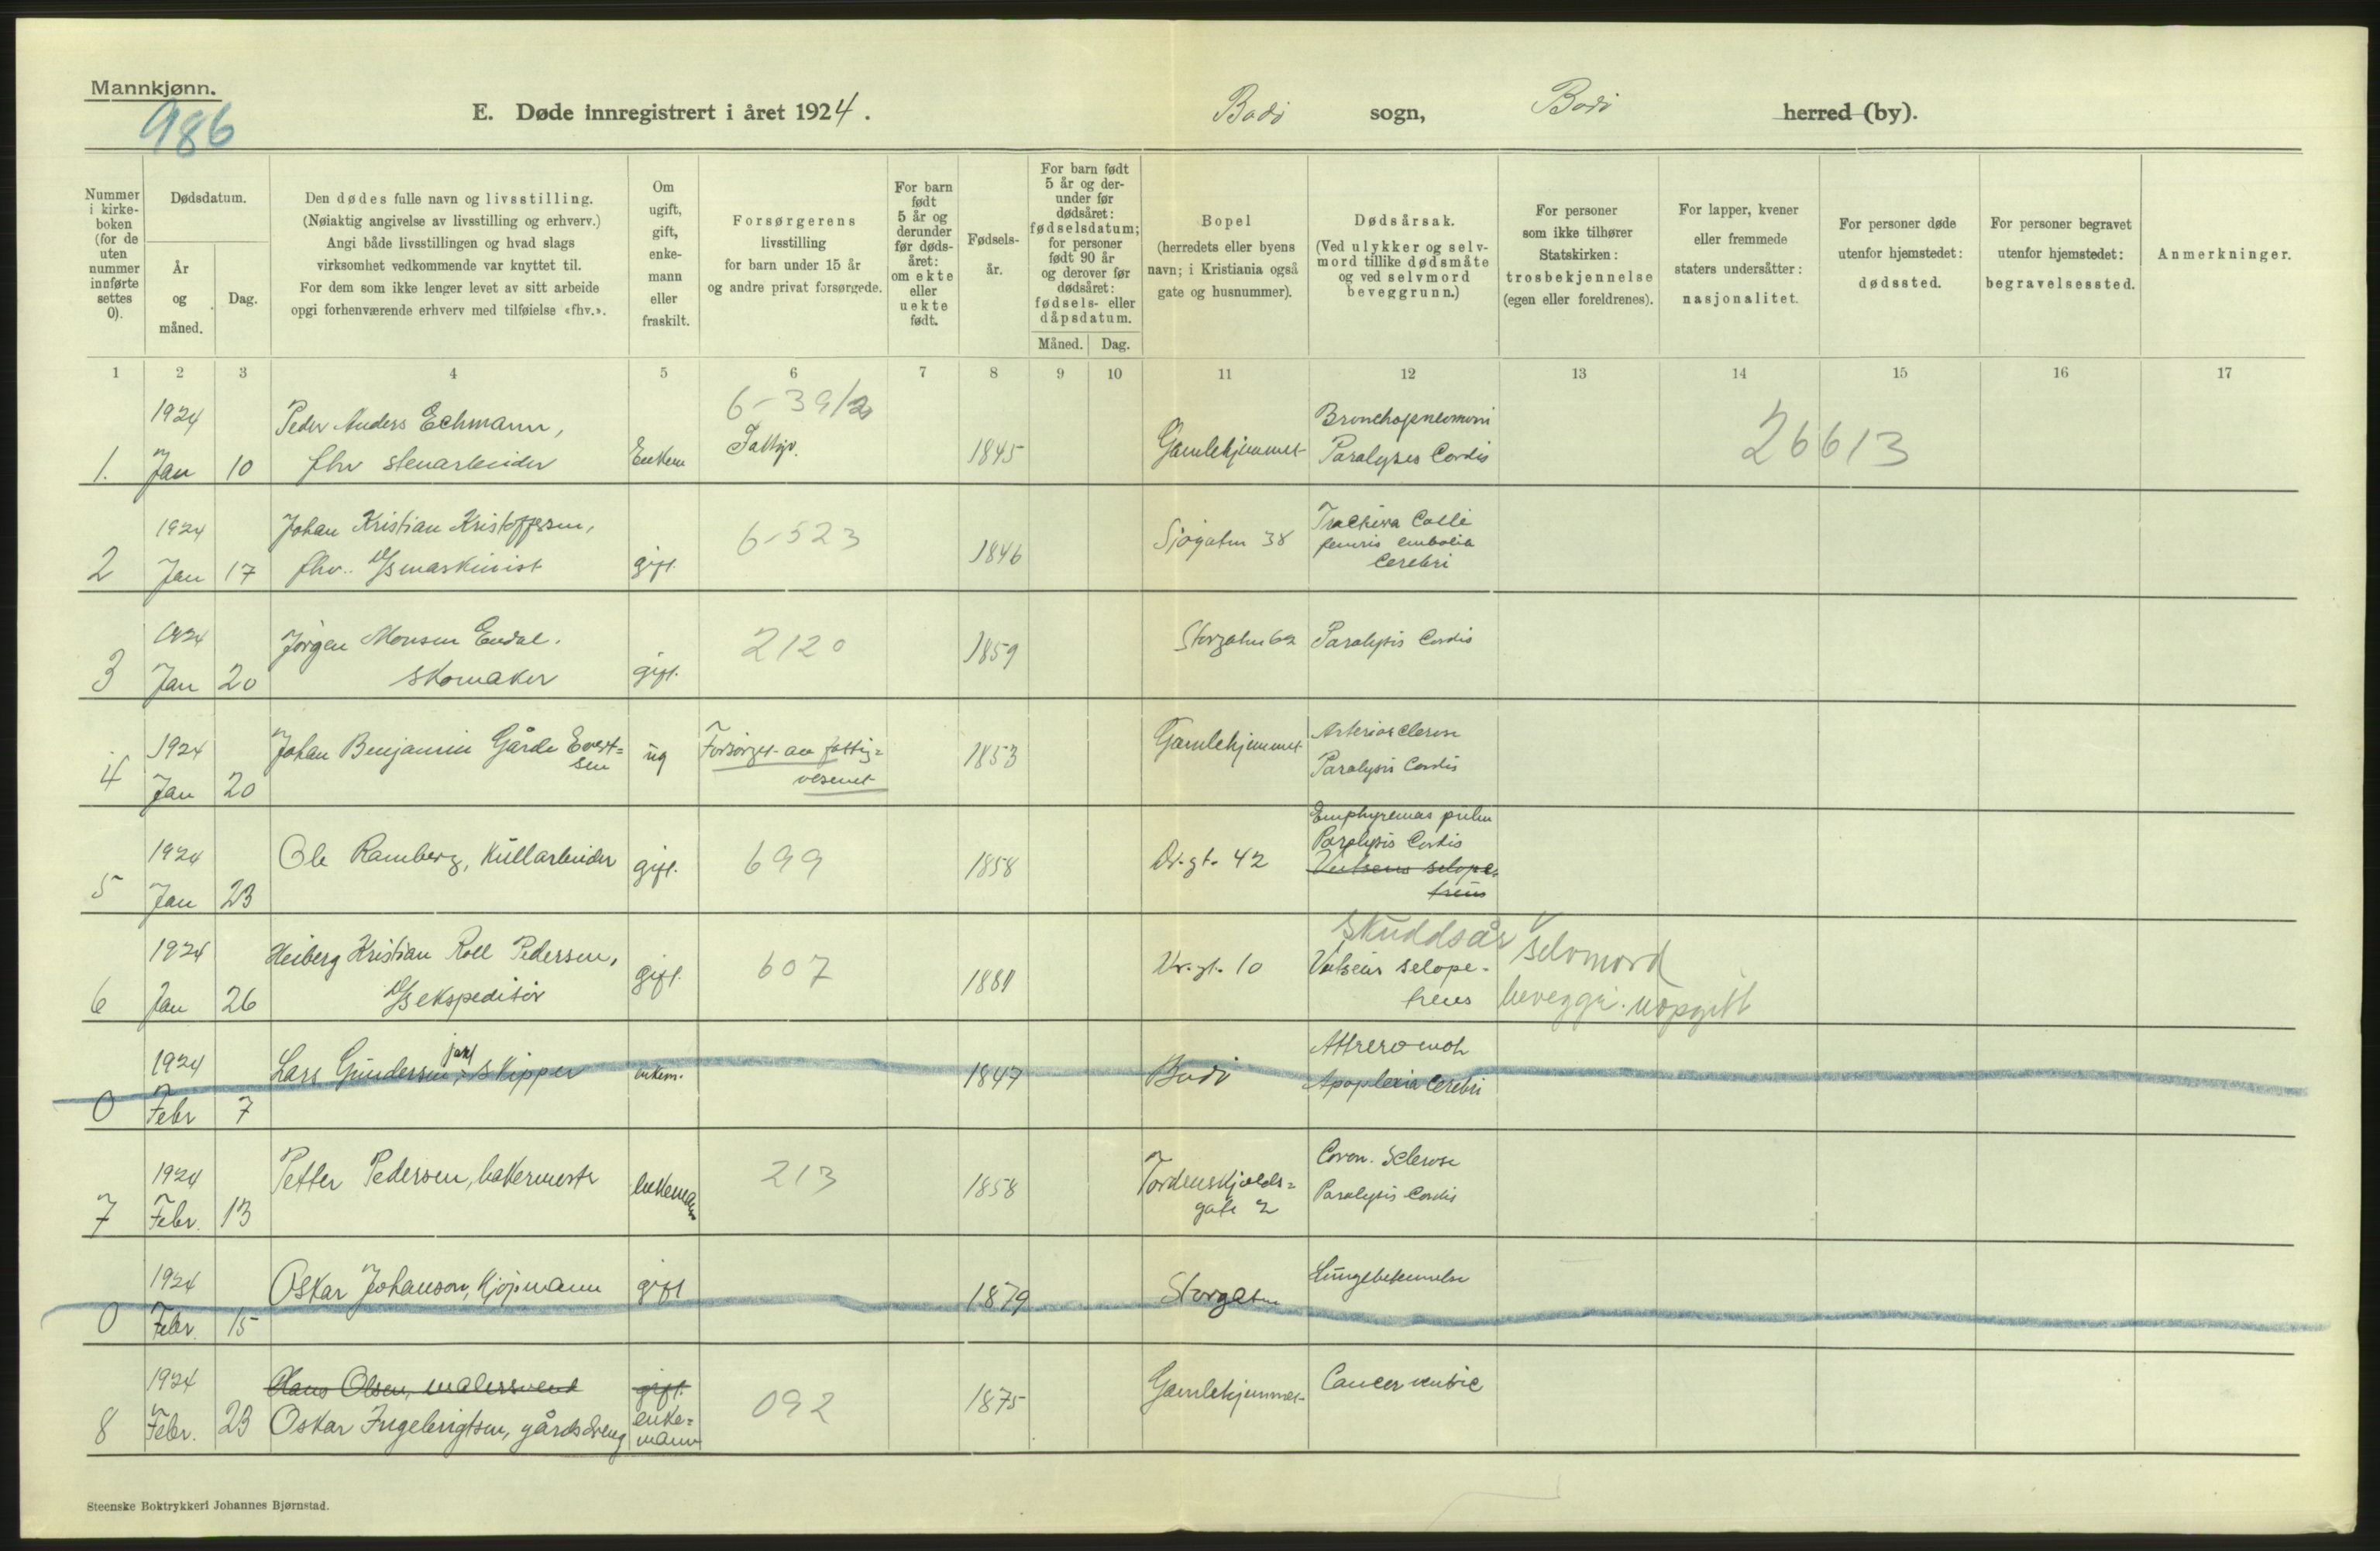 Mannkjønn.
986
E. Døde innregistrert i året 1924.
Bodø sogn, Bodø herred (by).
Nummer i kirkeboken (for de uten nummer innførte settes 0).
Dødsdatum.
År og måned.
Dag.
Den dødes fulle navn og livsstilling.
(Nøiaktig angivelse av livsstilling og erhverv.)
Angi både livsstillingen og hvad slags
virksomhet vedkommende var knyttet til.
For dem som ikke lenger levet av sitt arbeide
opgi forhenværende erhverv med tilføielse «fhv.».
Om ugift, gift, enkemann eller fraskilt.
Forsørgerens
livsstilling
for barn under 15 år
og andre privat forsørgede.
For barn født 5 år og derunder før dødsåret: om ekte eller uekte født.
Fødselsår.
For barn født 5 år og derunder før dødsåret: fødselsdatum; for personer født 90 år og derover før dødsåret: fødsels- eller dåpsdatum.
Måned. Dag.
Bopel
(herredets eller byens
navn; i Kristiania også
gate og husnummer).
Dødsårsak.
(Ved ulykker og selvmord tillike dødsmåte
og ved selvmord
beveggrunn.)
For personer
som ikke tilhører
Statskirken:
trosbekjennelse
(egen eller foreldrenes).
For lapper, kvener
eller fremmede
staters undersåtter:
nasjonalitet.
For personer døde
utenfor hjemstedet:
dødssted.
For personer begravet
utenfor hjemstedet:
begravelsessted.
Anmerkninger.
1 2 3 4 5 6 7 8 9 10 11 12 13 14 15 16 17
1924 Peder Anders Echmann, 6-39/2 Bronchopneumoni
1. Jan 10 fhv stenarbeider Enkem Fattigv. 1845 Gamlehjemmet Paralyses Cordis 26613
1924 Johan Kristian Kristoffersen, 6-523 Colli
2 Jan 17 fhv. D/S maskinist gift. 1846 Sjøgaten 38 femoris embolia
Cerebri
1924 Jørgen Monsen Endal. 2120 Storgaten 62 Paralysis Cordis
3 Jan 20 skomaker gift. 1859
1924 Johan Benjamin Gårde Evert=
sen ug Forsørget av fattig=
vesenet 1853 Gamlehjemmet Arteriosclerose
4 Jan 20 Paralysis Cordis
1924 Ole Ramberg, kullarbeider gift. 699 1858 Dr.gt. 42 Emphysemas pulm
5 Jan 23 Paralysis Cordis
Vulneus selope-
treus
1924 Heiberg Kristian Roll Pedersen, gift. 607 1881 Dr.gt. 10 Skuddsår v selvmord
6 Jan 26 D/S ekspeditør Vulneus selope-
treus beveggr. uopgitt
1924 Lars Gundersen, skipper enkem. 1847 Bodø
0 Febr 7 Apoplexia Cerebri
1924 Petter Pedersen, bakermester enkemann 213 1858 Tordenskjolds=
gate 2 Coron. Sclerose
7 Febr. 13 Paralysis Cordis
1924 Oskar Johanson, kjøpmann gift 1879 Storgaten Lungebetennelse
0 Febr. 15
1924 Hans Olsen, malersvend gift.
8 Febr. 23 Oskar Ingebrigtsen, gårdsdreng enke=
mann 092 1875 Gamlehjemmet Cancer ventric
Steenske Boktrykkeri Johannes Bjørnstad.